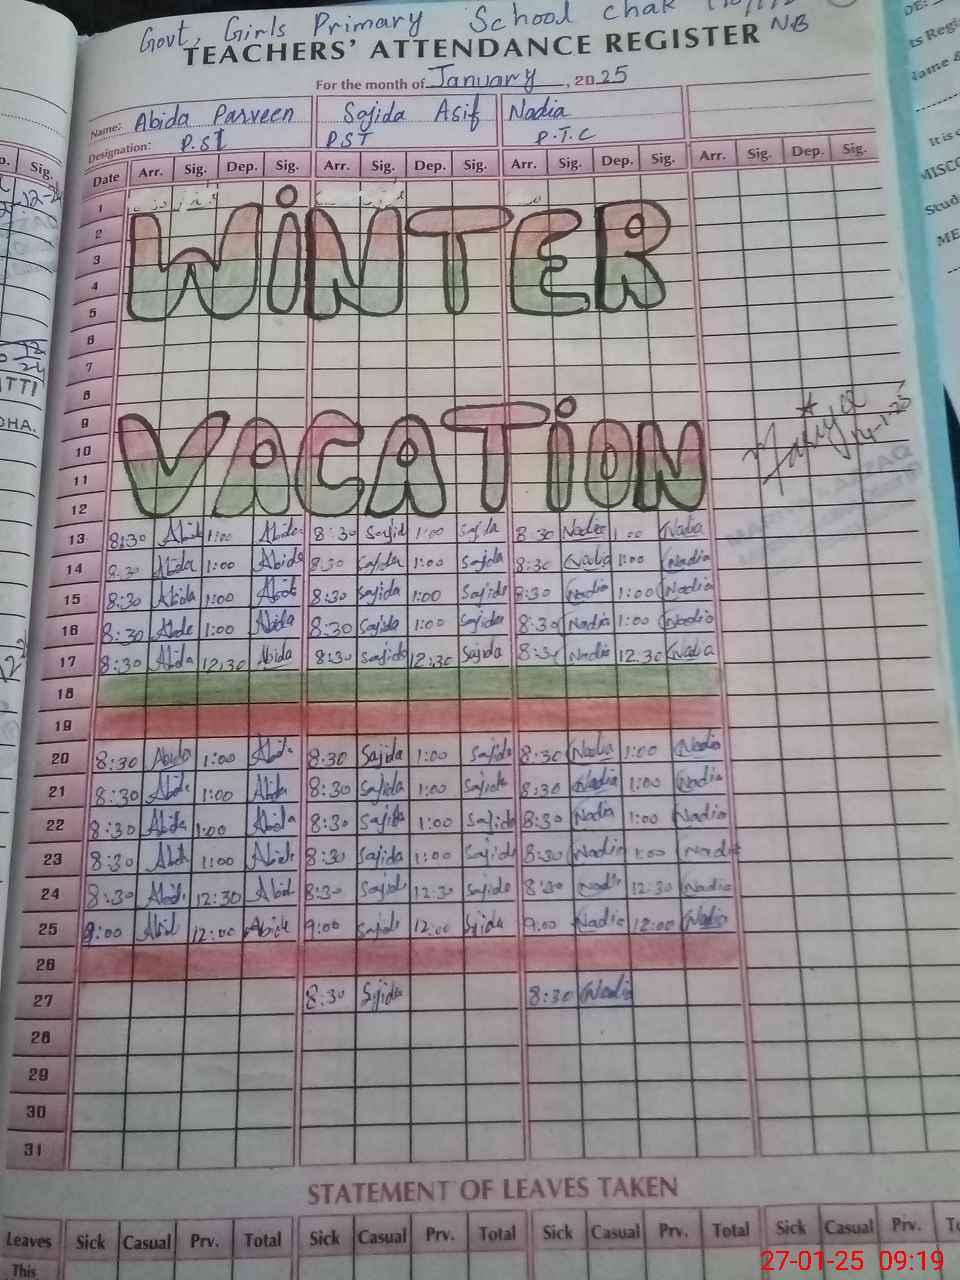 Govt, Girls Primary School Chak
N.B
TEACHERS' ATTENDANCE REGISTER
For the month of January, 2025
Name: Abida Parveen Sajida Asif Nadia
Designation: P.ST PST P.T.C
Date Arr. Sig. Dep. Sig. Arr. Sig. Dep. Sig. Arr. Sig. Dep. Sig. Arr. Sig. Dep. Sig.
1
WINTER
2
3
4
5
6
7
8
9
VACATION
10
11
12
13 8:30 Abid 1:00 Abida 8:30 Sajid 1:00 Sajida 8:30 Nadia 1:00 Nadia
14 8:30 Abida 1:00 Abida 8:30 Sajida 1:00 Sajida 8:30 Nadia 1:00 Nadia
15 8:30 Abida 1:00 Abida 8:30 Sajida 1:00 Sajida 8:30 Nadia 1:00 Nadia
16 8:30 Abida 1:00 Abida 8:30 Sajida 1:00 Sajida 8:30 Nadia 1:00 Nadia
17 8:30 Abida 12:30 Abida 8:30 Sajida 12:30 Sajida 8:30 Nadia 12.30 Nadia
18
19
20 8:30 Abida 1:00 Abida 8:30 Sajida 1:00 Sajida 8:30 Nadia 1:00 Nadia
21 8:30 Abida 1:00 Abida 8:30 Sajida 1:00 Sajida 8:30 Nadia 1:00 Nadia
22 8:30 Abida 1:00 Abida 8:30 Sajida 1:00 Sajida 8:30 Nadia 1:00 Nadia
23 8:30 Abida 1:00 Abida 8:30 Sajida 1:00 Sajida 8:30 Nadia 1:00 Nadia
24 8:30 Abida 12:30 Abida 8:30 Sajida 12:30 Sajida 8:30 Nadia 12:30 Nadia
25 9:00 Abid 12:00 Abida 9:00 Sajida 12:00 Sajida 9:00 Nadia 12:00 Nadia
26
27 8:30 Sajida 8:30 Nadia
28
29
30
31
STATEMENT OF LEAVES TAKEN
Leaves Sick Casual Prv. Total Sick Casual Prv. Total Sick Casual Prv. Total Sick Casual Prv.
This
27-01-25 09:19